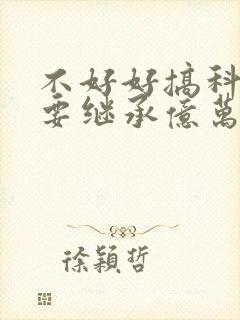 不好好搞科
要继承億萬
徐穎哲